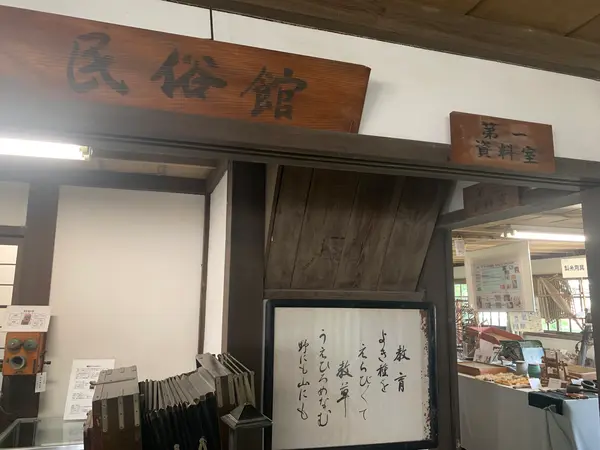 民俗館
第一
資料室
教育
よき種を
えらび〱て
教草
うえひろめなむ
野にも山にも